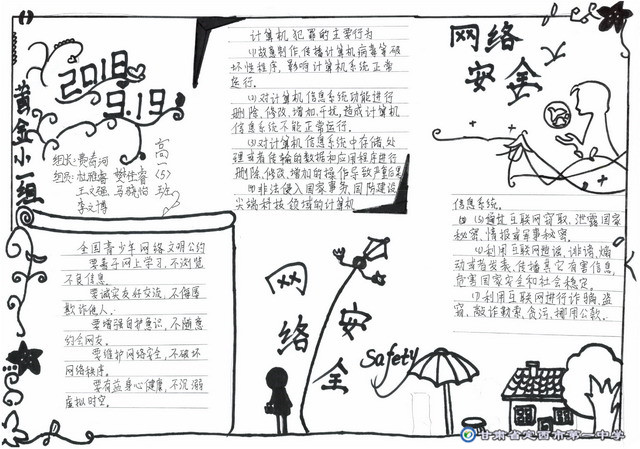 黄金小一组
2018
9.19
组长:
组员:杜雅睿 樊仕睿
王文强 马晓怡
李文博
高一(5)班
全国青少年网络文明公约
要善于网上学习,不浏览
不良信息.
要诚实友好交流,不侮辱
欺诈他人.
要增强自护意识,不随意
约会网友.
要维护网络安全,不破坏
网络秩序.
要有益身心健康,不沉溺
虚拟时空.
计算机犯罪的主要行为
⑴故意制作,传播计算机病毒等破
坏性程序,影响计算机系统正常
运行.
⑵对计算机信息系统功能进行
删除,修改,增加,干扰,造成计算机
信息系统不能正常运行.
⑶对计算机信息系统中存储,处
理或者传输的数据和应用程序进行
删除,修改,增加的操作导致严重后果
⑷非法侵入国家事务,国防建设
尖端科技领域的计算机
网络安全
Safety
网络
安全
信息系统.
互联网窃取、泄露国家
秘密,情报或军事秘密.
⑹利用互联网造谣、诽谤、煽
动或者发表、传播其它有害信息,
危害国家安全和社会稳定.
⑺利用互联网进行诈骗,盗
窃、敲诈勒索、贪污、挪用公款.
甘肃省定西市第一中学